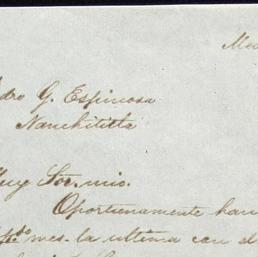 Me
dro G. Espinosa
Nanchititla
uy Sor. mio.
Oportunamente han
pdo mes la ultima con el